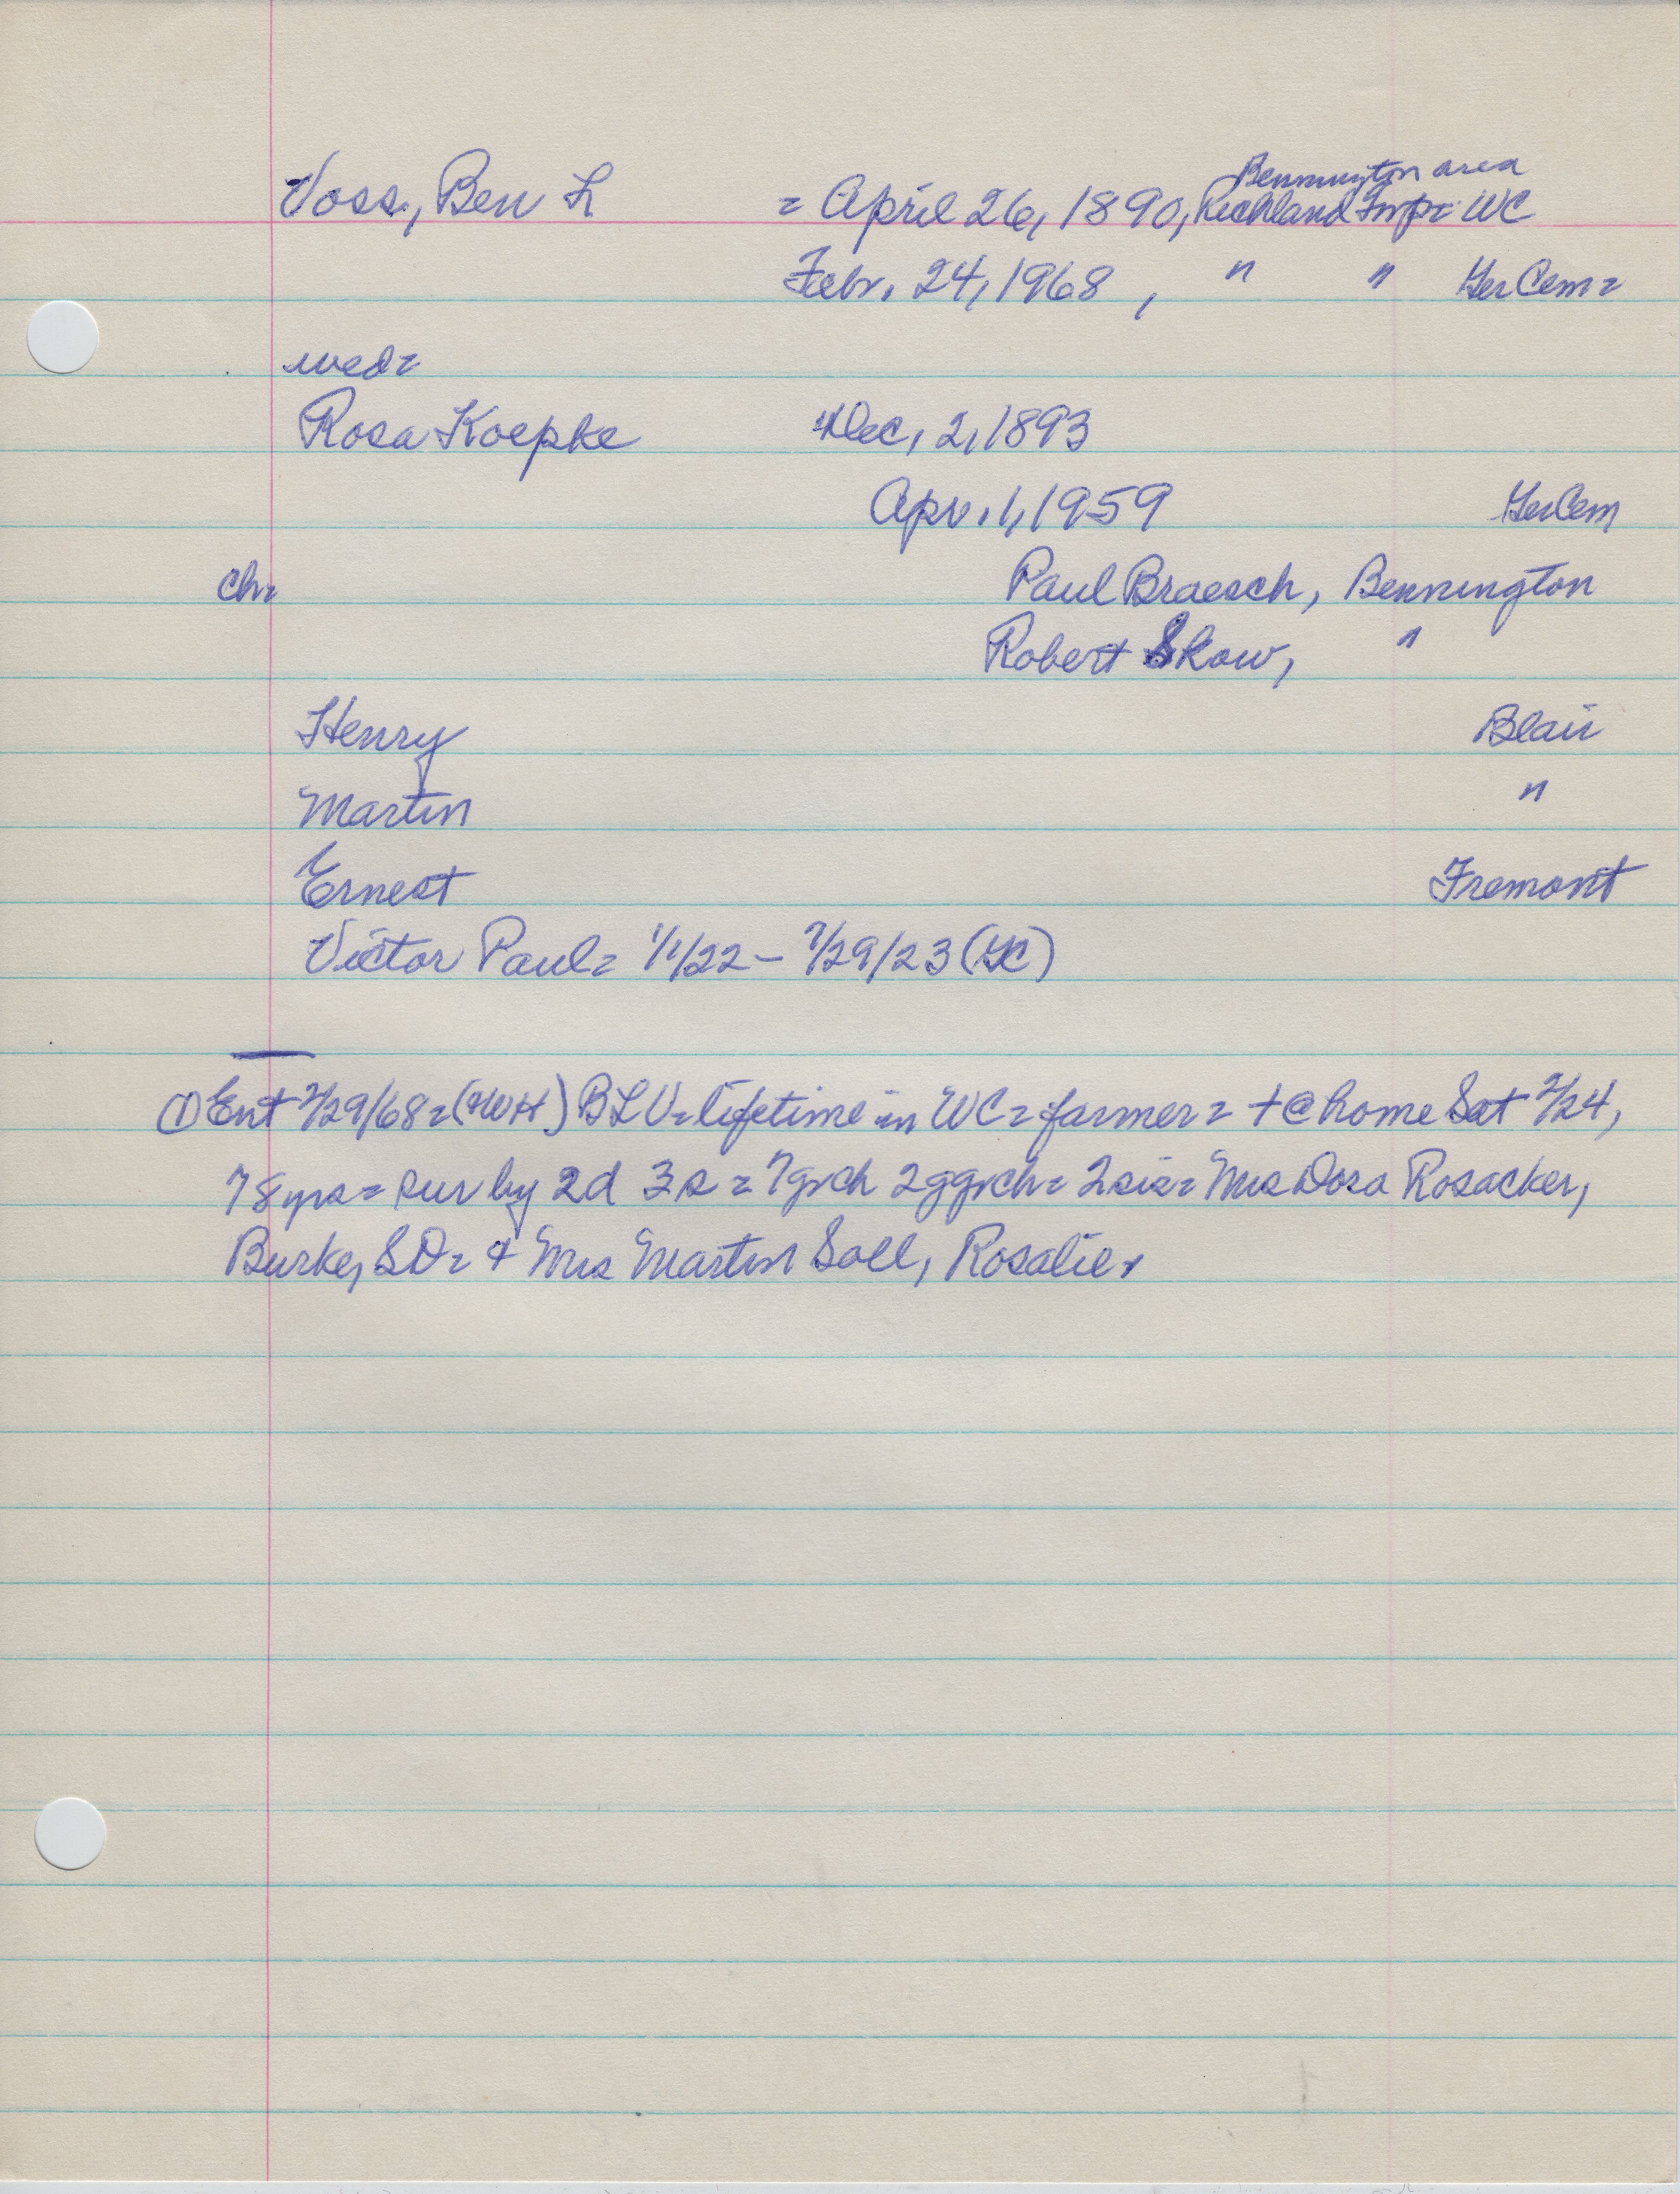 Bennington area
Voss, Ben L = April 26, 1890, Richland Twp= WC
Febr. 24, 1968 , " " Ger Cem=
wed=
Rosa Koepke Dec, 2, 1893
Apr. 1, 1959 Ger Cem
ch= Paul Braesch, Bennington
Robert Skow, "
Henry Blair
Martin "
Ernest Fremont
Victor Paul= 1/1/22 – 7/29/23 (GC)
① Ent 2/29/68= ( ) BLV= lifetime in WC= farmer= + @ home Sat 2/24,
78 yrs= sur by 2d 3s = 7grch 2ggrch= 2sis= Mrs Dora Rosacker,
Burke, SD= & Mrs Martin Soll, Rosalie.